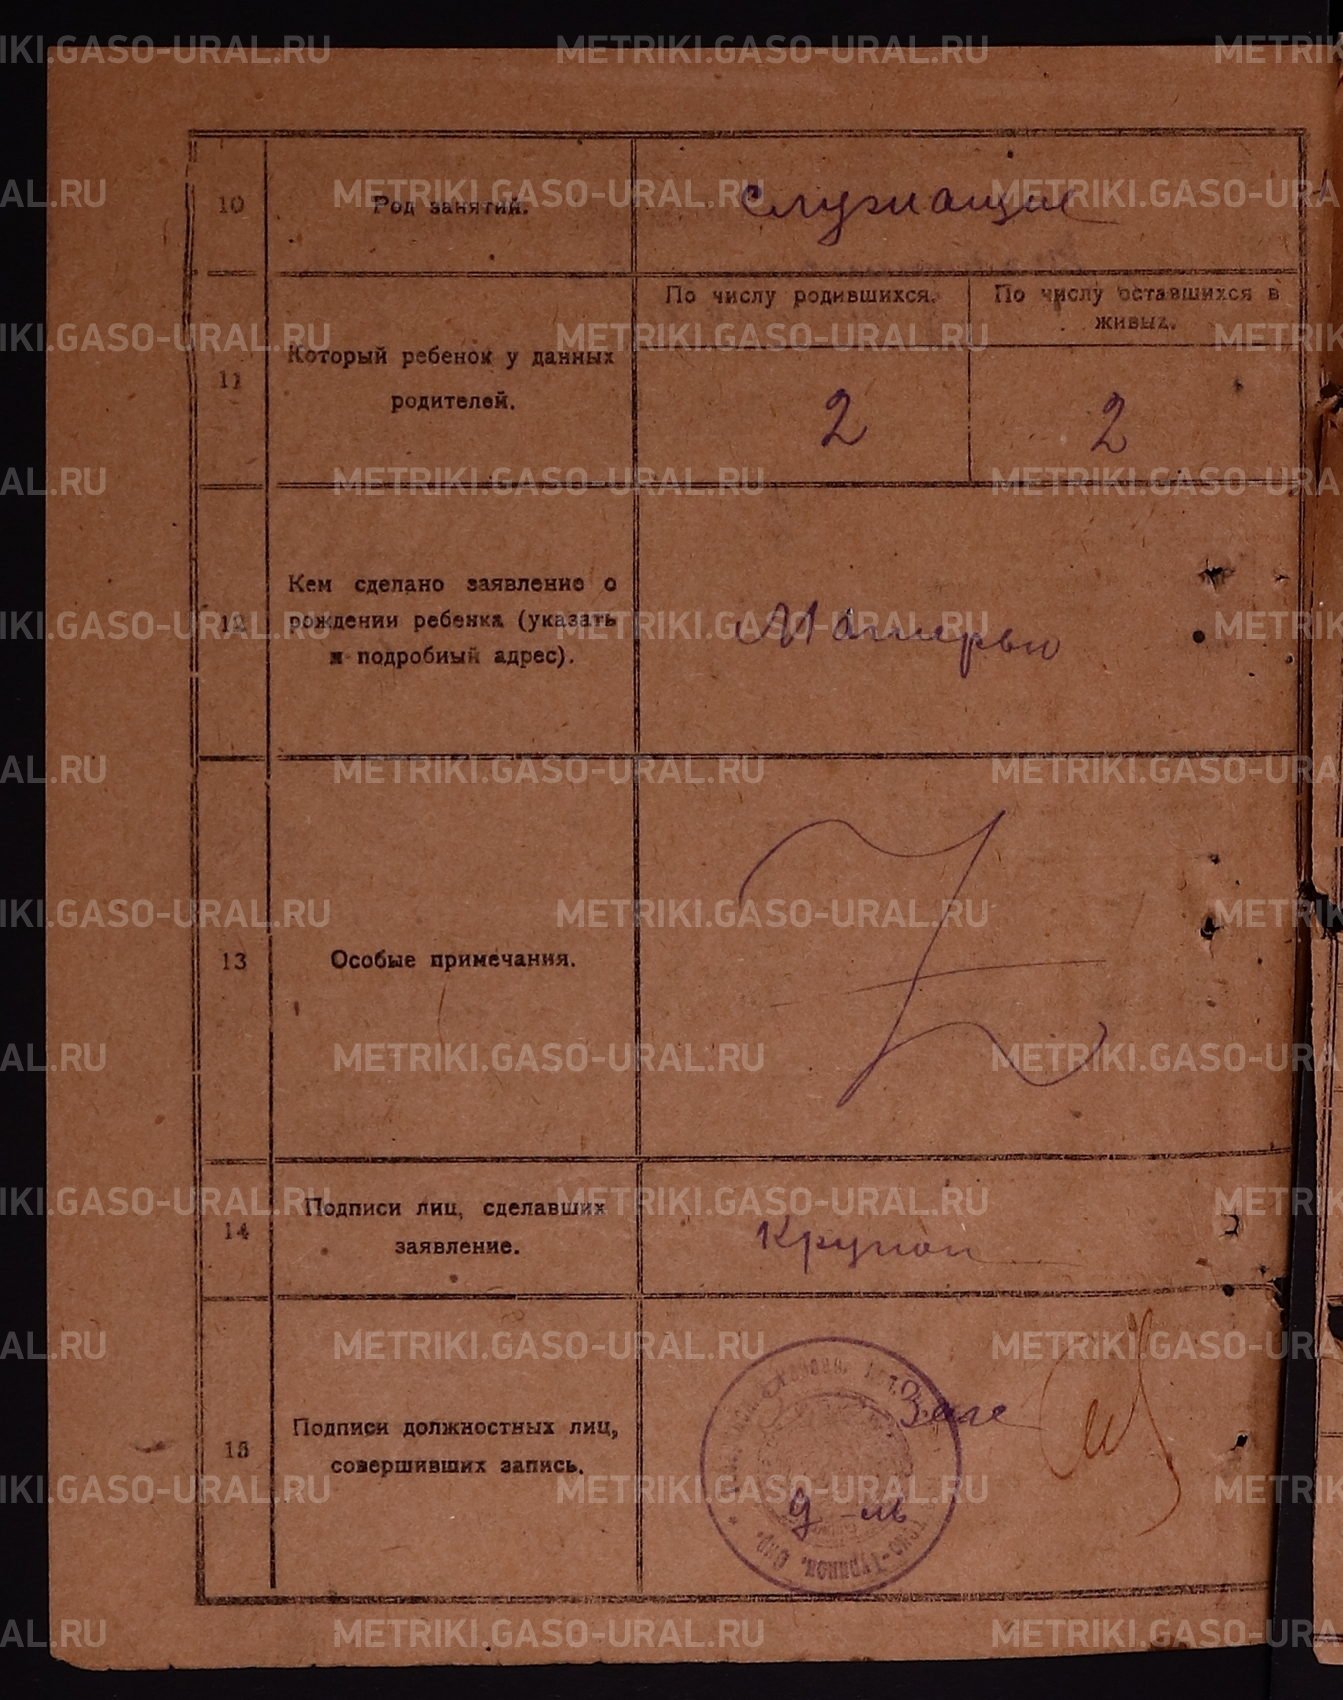 METRIKI.GASO-URAL.RU
10 Род занятий. Служащие
11 Который ребенок у данных родителей.
По числу родившихся.
По числу оставшихся в
живых.
2 2
12 Кем сделано заявление о
рождении ребенка (указать
и подробный адрес).
Матерью
13 Особые примечания.
14 Подписи лиц, сделавших
заявление.
15 Подписи должностных лиц,
совершивших запись.
Загс